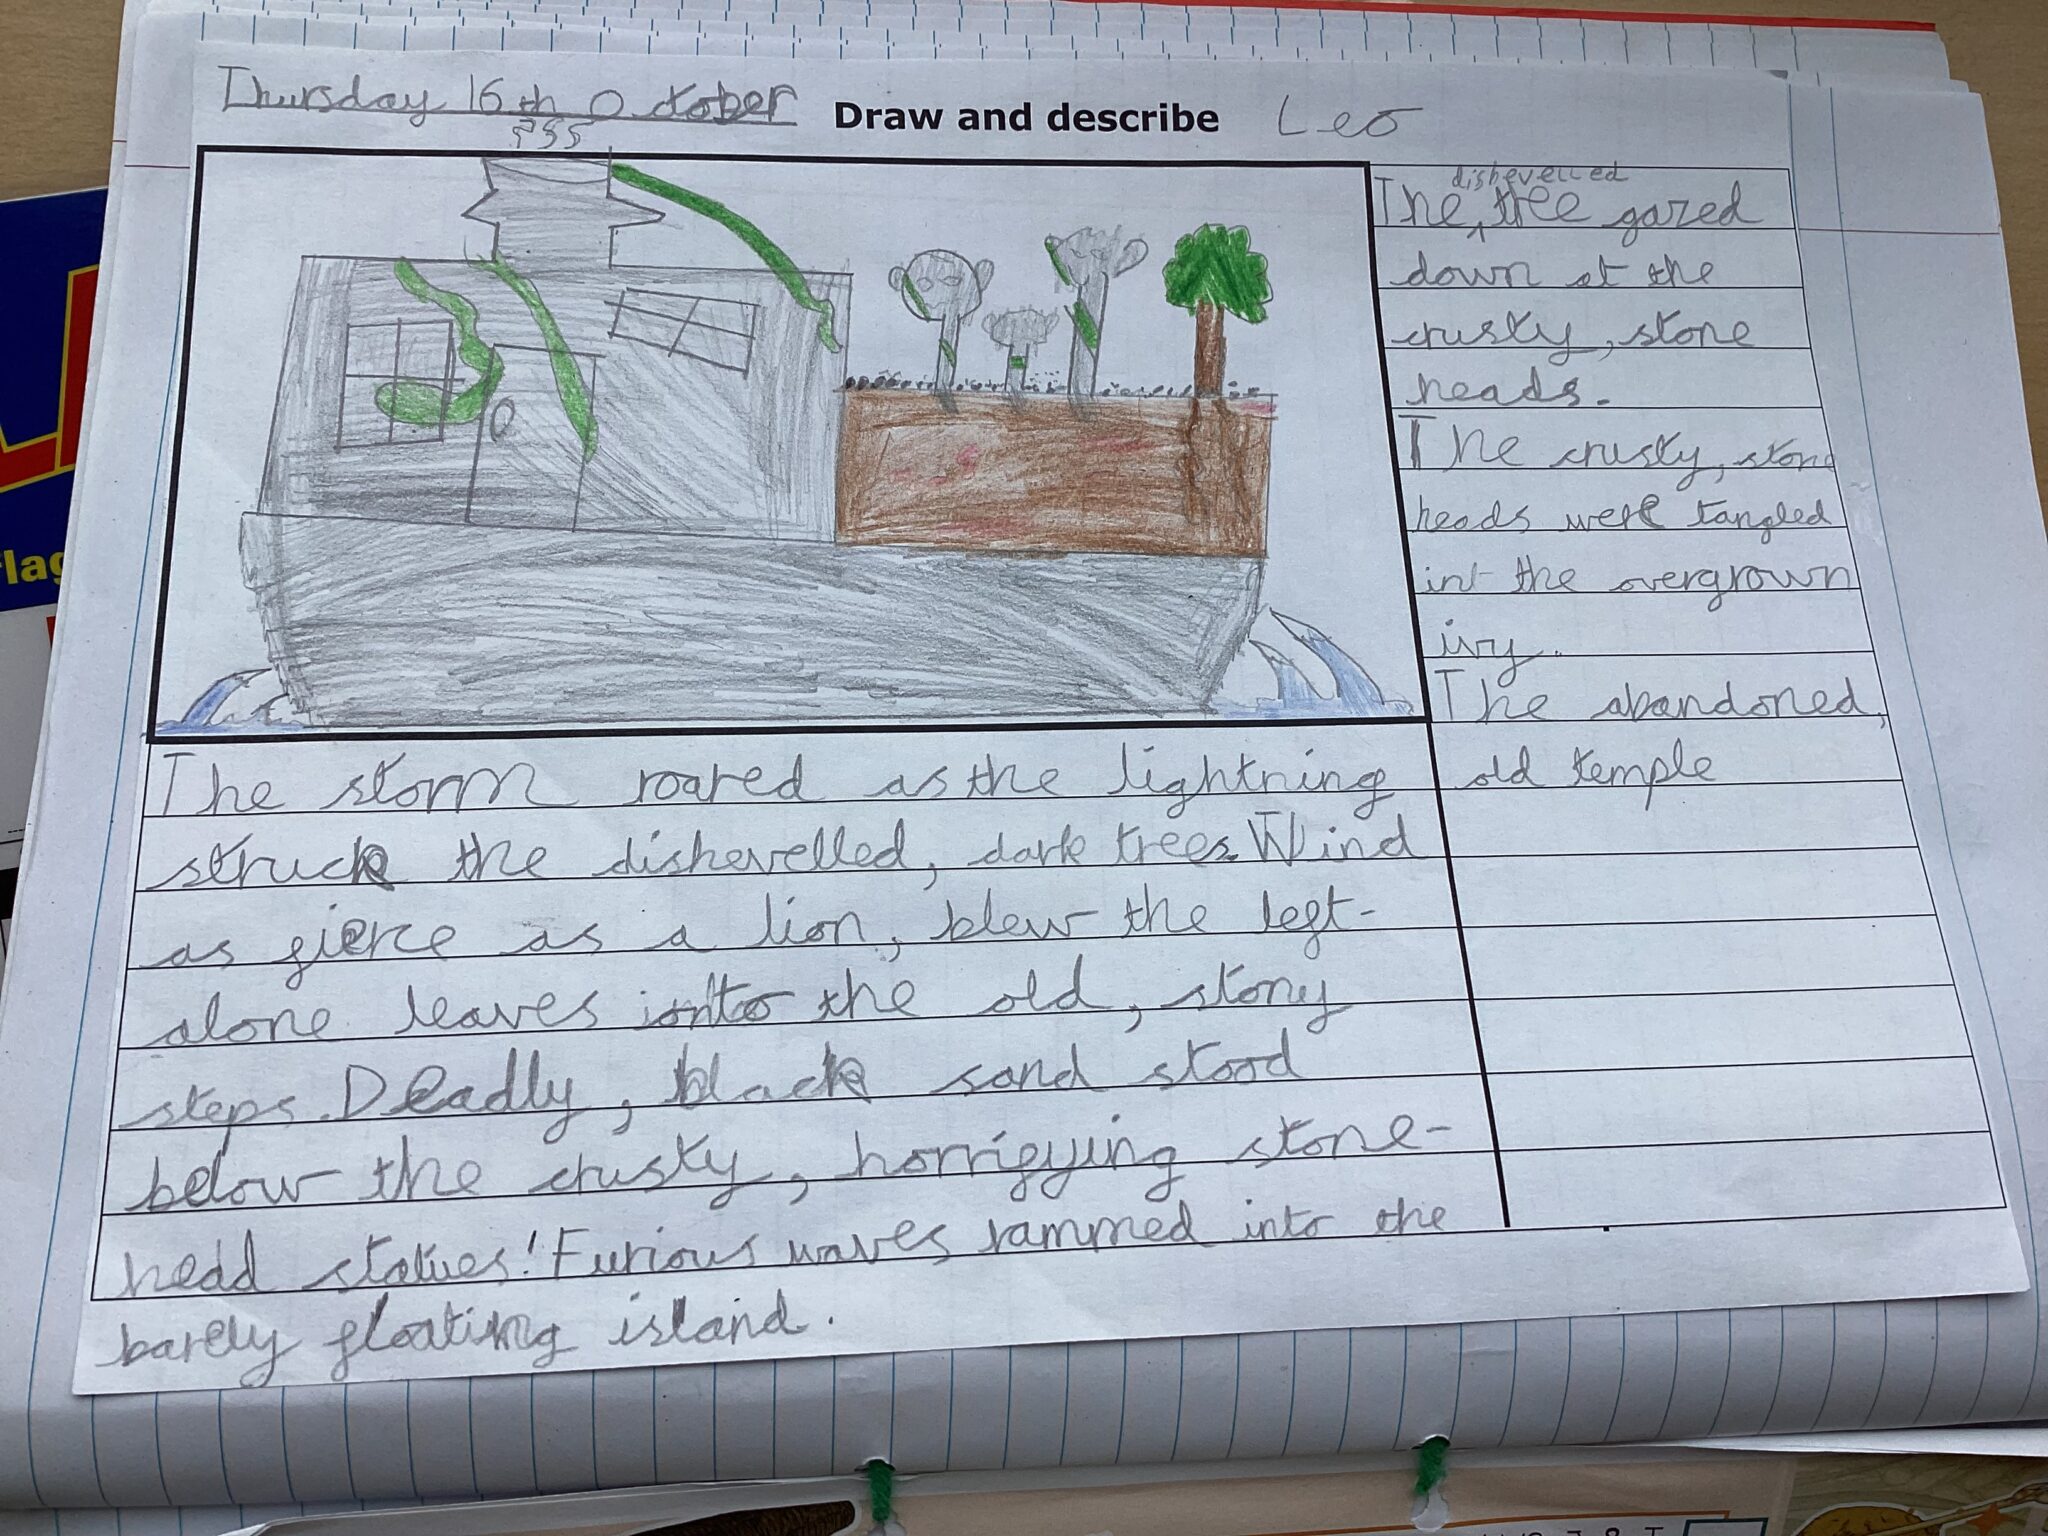 Thursday 16th October
Draw and describe
Leo
dishevelled
The ‸ tree gazed
down at the
crusty, stone
heads.
The crusty, stone
heads were tangled
int the overgrown
ivy.
The abandoned,
old temple
The storm roared as the lightning
struck the dishevelled, dark trees. Wind
as fierce as a lion, blew the left-
alone leaves onto the old, stony
steps. Deadly, black sand stood
below the crusty, horrifying stone-
head statues! Furious waves rammed into the
barely floating island.